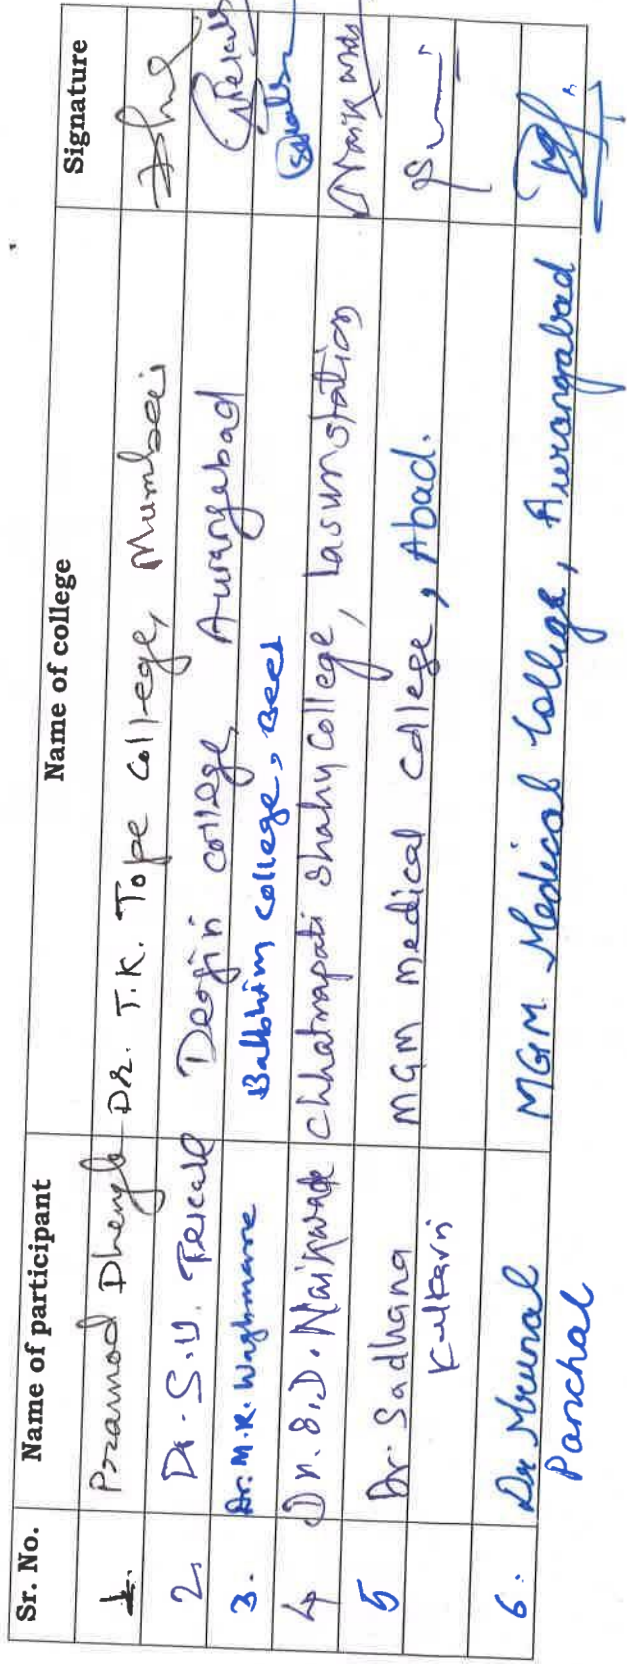 Sr. No. Name of participant Name of college Signature
1. Pramod Dhengle Dr. T.K. Tope College, Mumbai
2. Dr. S.Y. Deogiri College, Aurangabad
3. Dr. M.R. Waghmare Balbhim College, Beed
4 Dr. S.D. Naikwade Chhatrapati Shahu College, Lasurstation
5 Dr. Sadhana MGM Medical College, Abad.
Kulkarni
6. Dr Mrunal MGM Medical College, Aurangabad
Panchal